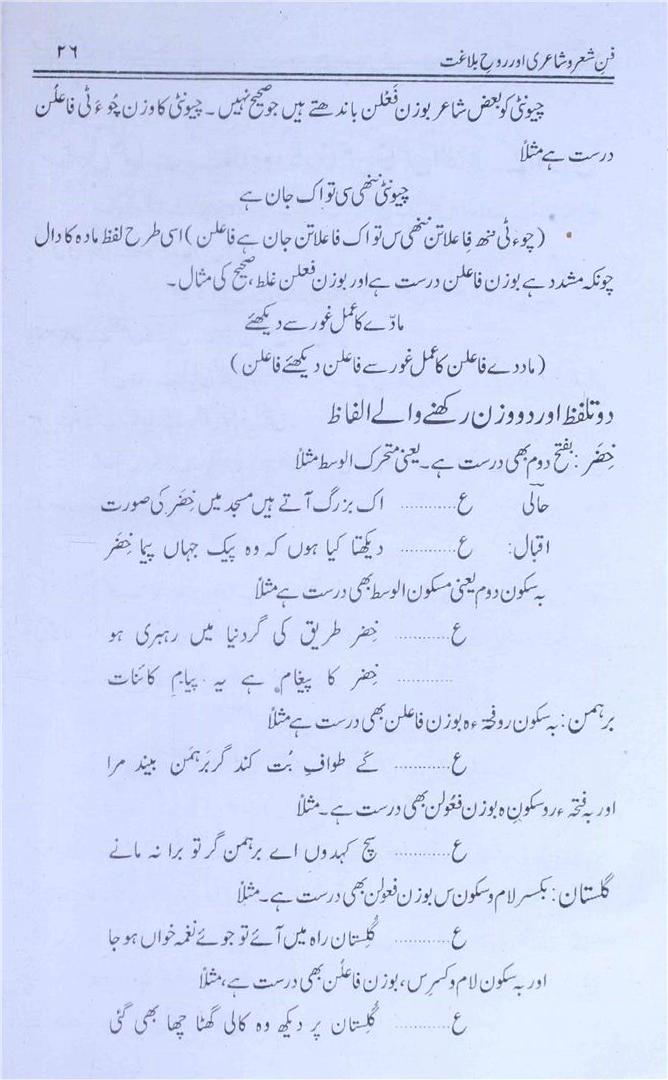 فنِ شعر و شاعری اور روحِ بلاغت ۲۶
چیونٹی کو بعض شاعر بوزن فَعْلن باندھتے ہیں جو صحیح نہیں۔ چیونٹی کا وزن چُوءَ ٹی فاعلُن
درست ہے مثلاً
چیونٹی ننھی سی تو اک جان ہے
(چوءٹی ننھ فاعلاتن ننھی س تو اک فاعلاتن جان ہے فاعلن) اسی طرح لفظ مادہ کا دال
چونکہ مشدد ہے بوزن فاعلن درست ہے اور بوزن فعلن غلط، صحیح کی مثال۔
مادّے کا عمل غور سے دیکھئے
(ماددے فاعلن کا عمل غور سے فاعلن دیکھئے فاعلن)
دو تلفظ اور دو وزن رکھنے والے الفاظ
خِضَر: بفتح دوم بھی درست ہے۔ یعنی متحرک الوسط مثلاً
حالی ع............ اک بزرگ آتے ہیں مسجد میں خِضَر کی صورت
اقبال: ع............ دیکھتا کیا ہوں کہ وہ پیک جہاں پیما خِضَر
بہ سکون دوم یعنی مسکون الوسط بھی درست ہے مثلاً
ع............ خِضر طریق کی گر دنیا میں رہبری ہو
............ خِضر کا پیغام ہے یہ پیامِ کائنات
برہمن: بہ سکون ر و فتحۂ ہ بوزن فاعلن بھی درست ہے مثلاً
ع............ کَے طوافِ بُت کند گر بَرہَمن بیند مرا
اور بہ فتحۂ ر و سکونِ ہ بوزن فعُولن بھی درست ہے۔ مثلاً
ع............ سچ کہدوں اے برہمن گر تو برا نہ مانے
گلستان: بکسر لام و سکون س بوزن فعولن بھی درست ہے۔ مثلاً
ع............ گُلِستان راہ میں آئے تو جوئے نغمہ خواں ہو جا
اور بہ سکون لام و کسرِ س، بوزن فاعلُن بھی درست ہے، مثلاً
ع............ گُلْستان پر دیکھ وہ کالی گھٹا چھا بھی گئی